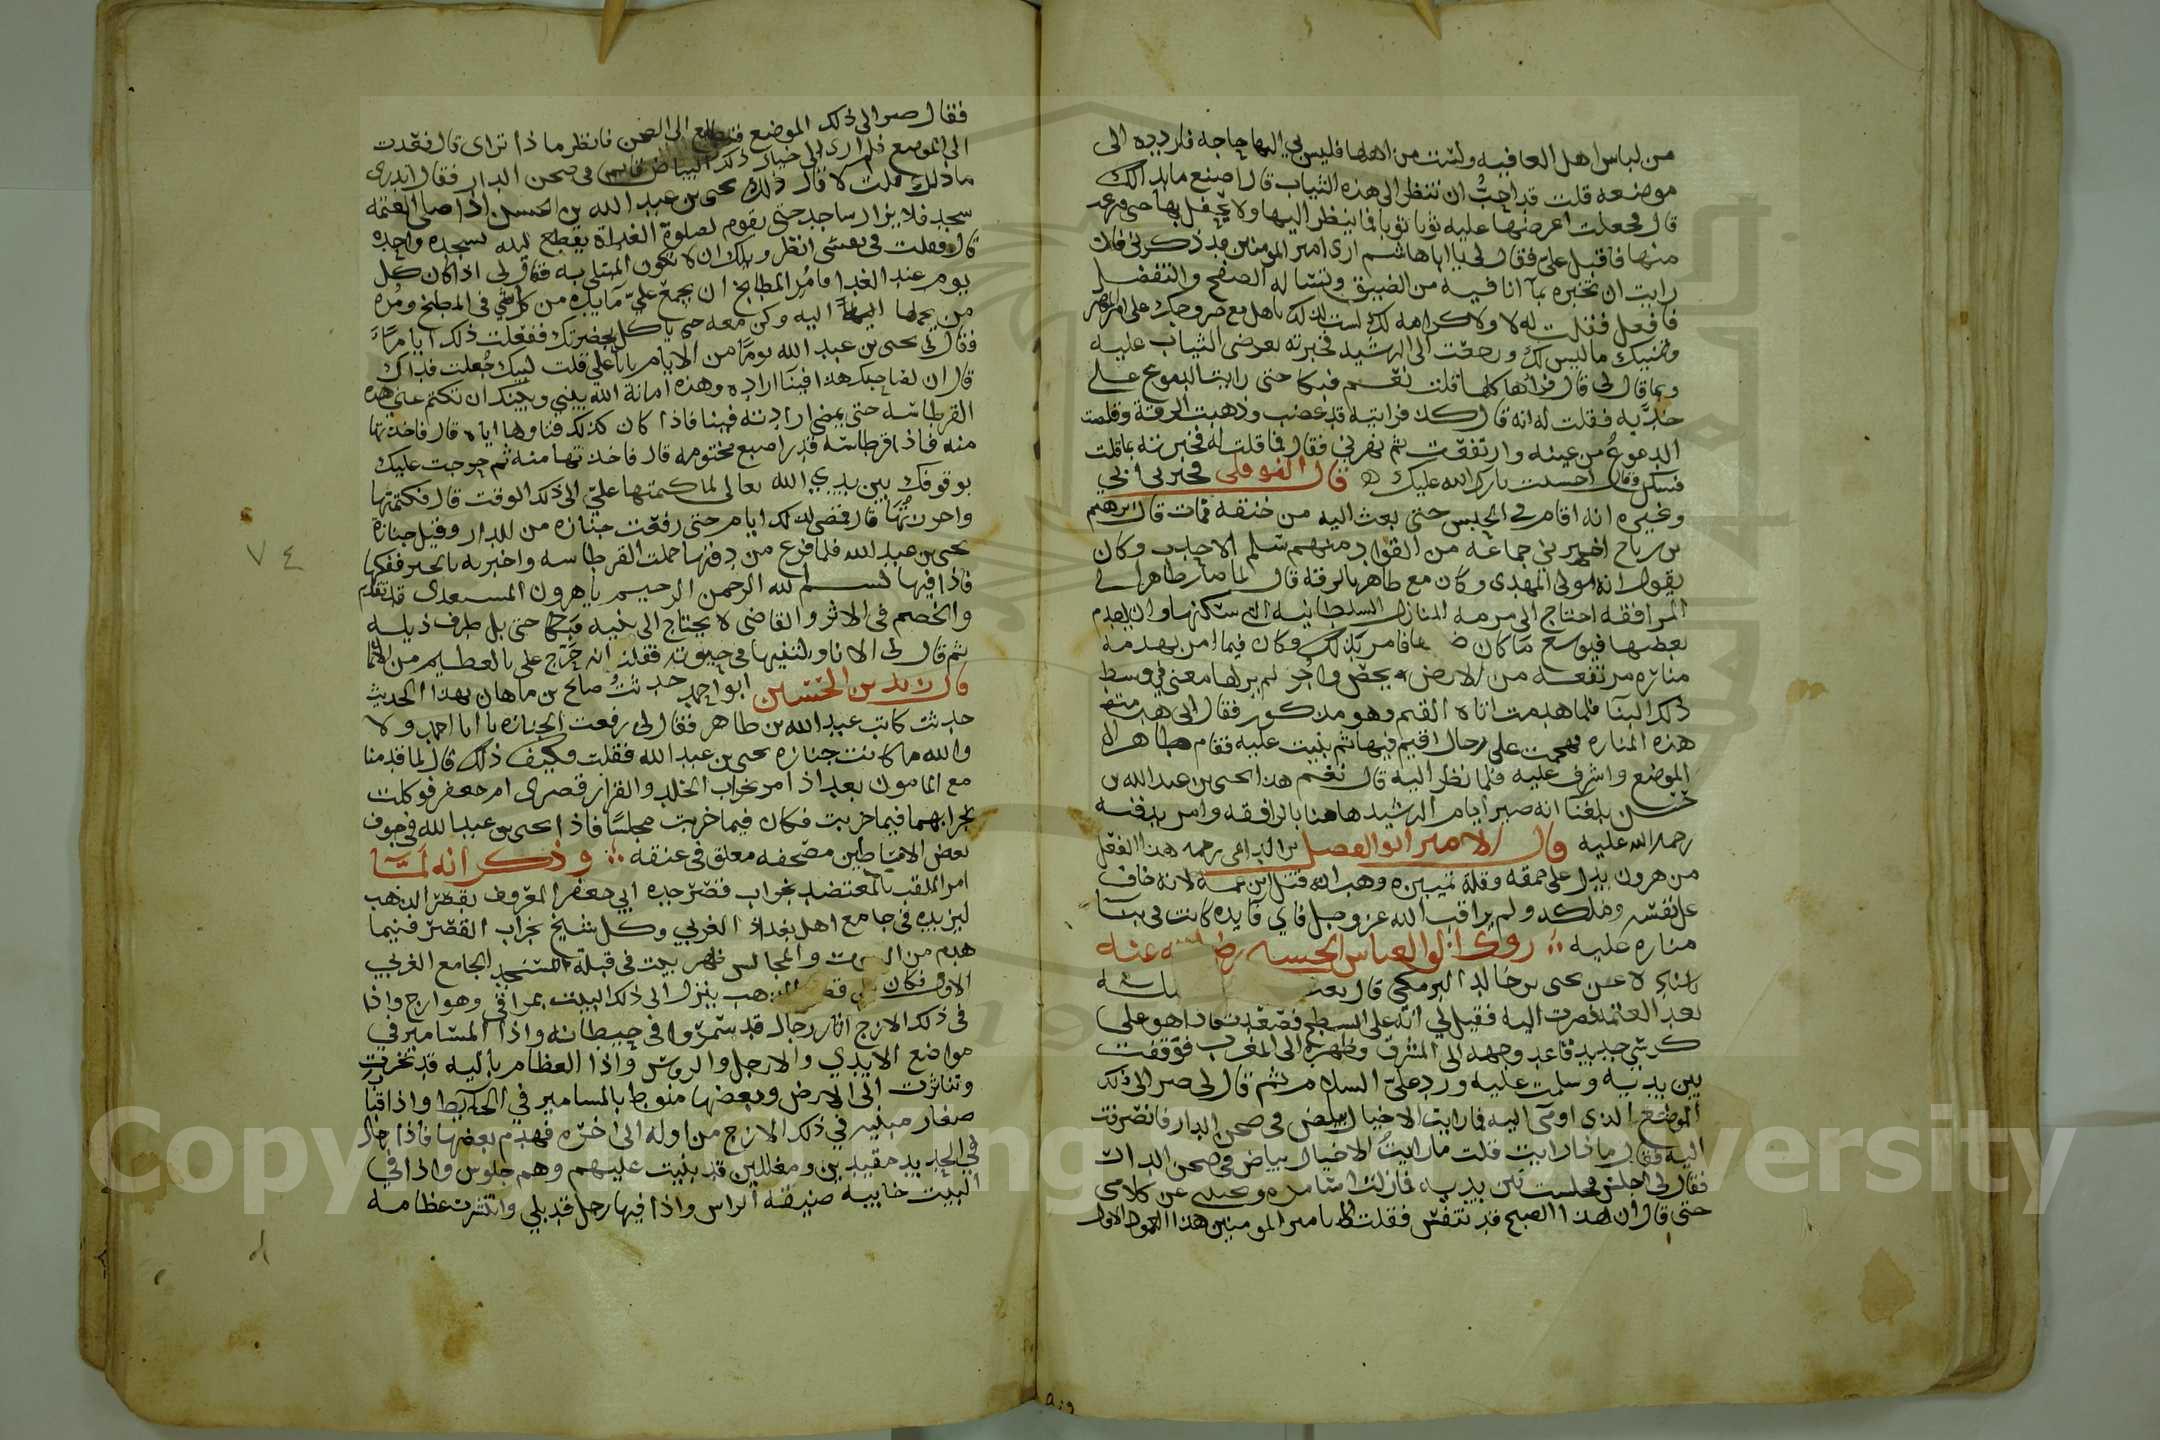 من لباس اهل العافيه ولست من اهلها فليس بي اليها حاجه فارددده الى
موضعه قلت قد احبُّ ان تنظر الى هذه الثياب قال اصنع ما بدا لك
قال فجعلت اعرضها عليه ثوبا ثوبا فما ينظر اليها ولا يحفل بها حتى
منها فاقبل علي فقال لي يا اباهاشم ارى امير المومنين قد ذكرني فان
رايت ان تخبره بما انا فيه من الضيق وتساله الصفح والتفضل
فافعل فقلت له لا ولا كرامه لك لست لذلك باهل مع خروجك على امير
وتمنيك ما ليس لك ورجعت الى الرشيد فخبرته بعرضي الثياب عليه
وبما قال لي قال فراها كلها قلت نعم فبكا حتى رايت الدموع على
خديه فقلت له انه قال كذا فرايته قد غضب وذهبت الرقة وقلصت
الدموع من عينه وارتفعت ثم نهرني فقال فما قلت له فخبرته بما قلت
فسكن وقال احسنت بارك الله عليك قال النوفلي فخبرني ابي
وغيره انه اقام في الحبس حتى بعث اليه من خنقه فمات قال ابرهيم
بن رياح اخبرني جماعة من القواد منهم سلم الاحدب وكان
يقول انه مولى المهدي وكان مع طاهر بالرقة قال لما صار طاهر الى
الرافقه احتاج الى مرمة المنازل السلطانيه التي سكنها وان يهدم
بعضها فيوسع ما كان فامر بذلك وكان فيما امر بهدمه
مناره مرتفعه من الارض بجص واجر لم ير لها معنى في وسط
ذلك البنا فلما هدمت اتاه القيم وهو مذكور فقال الى هدمت
هذه المناره فهجمت على رجال اقيم فيها ثم بنيت عليه فقام طاهر الى
الموضع واشرف عليه فلما نظر اليه قال نعم هذا يحيى بن عبد الله بن
حسن بلغنا انه صبر ايام الرشيد هاهنا بالرافقه وامر بدفنه
رحمه الله عليه قال الامير ابو الفضل بن الداعي رحمه هذا الفعل
من هرون يدل على حمقه وقلة تمييزه وهب انه قتل ابن عمه لانه خاف
على نفسه وملكه ولم يراقب الله عز وجل فاي فايده كانت في بنا
مناره عليه روى ابو العباس الحسنه عنه
باسناده عن يحيى بن خالد البرمكي قال
بعد العتمه فصرت اليه فقيل لي انه على السطح فصعدت فاذا هو على
كرسي حديد قاعد وجهه الى المشرق وظهره الى المغرب فوقفت
بين يديه وسلمت عليه ورد علي السلام ثم قال لي صر الى ذلك
الموضع الذي اومى اليه فما رايت الا خيال ابيض في صحن الدار فانصرفت
اليه فقال ماذا رايت قلت ما رايت الا خيال بياض في صحن الدار
فقال لي اجلس فجلست بين يديه فما زلت اسامره عن كلامي
حتى قال ان هذا الصبح قد تنفس فقلت له يا امير المومنين هذا الاول
فقال صر الى ذلك الموضع فتطلع الى الصحن فانظر ماذا ترى قال فقعدت
الى الموضع فلم ار الا خيال ذلك البياض في صحن الدار فقال اتدري
ما ذلك قلت لا قال ذلك يحيى بن عبد الله بن الحسن اذا صلى العتمه
سجد فلا يزال ساجدا حتى يقوم لصلوة الغداة يقطع ليله بسجده واحده
قال فقلت في نفسي انظر ويلك ان لا تكون المبتلى به فقال لي اذا كان كل
يوم عند الغدا فامر المطابخ ان يجمع عليّ مايده من كل شي في المطبخ ومره
من يحملها اليه وكن معه حتى ياكل بحضرتك ففعلت ذلك اياما
فقال لي يحيى بن عبد الله يوما من الايام يا با علي قلت لبيك جُعلت فداك
قال ان لصاحبك هذا فينا اراده وهذه امانة الله بيني وبينك ان تكتم على هذه
القرطاسه حتى يمضي ارادته فينا فاذا كان كذلك فناولها اياه قال فاخذتها
منه فاذا قرطاسه قدر اصبع مختومه قال فاخذتها منه ثم حرجت عليك
بوقوفك بين يدي الله تعالى لما كتمتها عليّ الى ذلك الوقت قال فكتمتها
واحرزتها قال فمضى لذلك ايام حتى رفعت جنازه من الدار وقيل جنازة
يحيى بن عبد الله فلما فرغ من دفنها حملت القرطاسه واخبرته بالخبر ففكها
فاذا فيها بسم الله الرحمن الرحيم يا هرون المستعدى قد تقدم
والخصم في الاثر والقاضي لا يحتاج الى بينه فبكا حتى بل طرف ذيله
ثم قال لي الا ناولتنيها في حيوته فقلت انه حرّج علي بالعظيم من
قال زيد بن الحسين ابو احمد حدثتُ صالح بن ماهان بهذا الحديث
حدثت كاتب عبد الله بن طاهر فقال لي رفعت الجنازه يا ابا احمد ولا
والله ما كانت جنازه يحيى بن عبد الله فقلت وكيف ذلك قال لما قدمنا
مع المامون بغداذ امر بخراب الخلد والقرار قصري ام جعفر فوكلت
بخرابهما فيما خربت فكان فيما خربت مجلسًا فاذا يحيى بن عبد الله في جوف
بعض الاساطين مصحفه معلق في عنقه وذكر انه لما
امر الملقب بالمعتضد بخراب قصر جده ابي جعفر المعروف بقصر الذهب
ليزيده في جامع اهل بغداذ الغربي وكل شيخ بخراب القصر فيما
هدم من البيوت والمجالس ظهر بيت في قبلة المسجد الجامع الغربي
الاول فكان الذهب ينزل الى ذلك البيت بمراقي وهو ازج واذا
في ذلك الازج اثار رجال قد سمروا في حيطانه واذا المسامير في
مواضع الايدي والارجل والروس واذا العظام باليه قد نخرت
وتناثرت الى الارض وبعضها منوط بالمسامير في الحايط واذا قبا
صغار مبنيه في ذلك الازج من اوله الى اخره فهدم بعضها فاذا رجال
في الحديد مقيدين ومغللين قد بنيت عليهم وهم جلوس واذا في
البيت خابيه ضيقة الراس واذا فيها رجل قد بلي وانتثرت عظامه
٧٤
Copyright © King Saud University